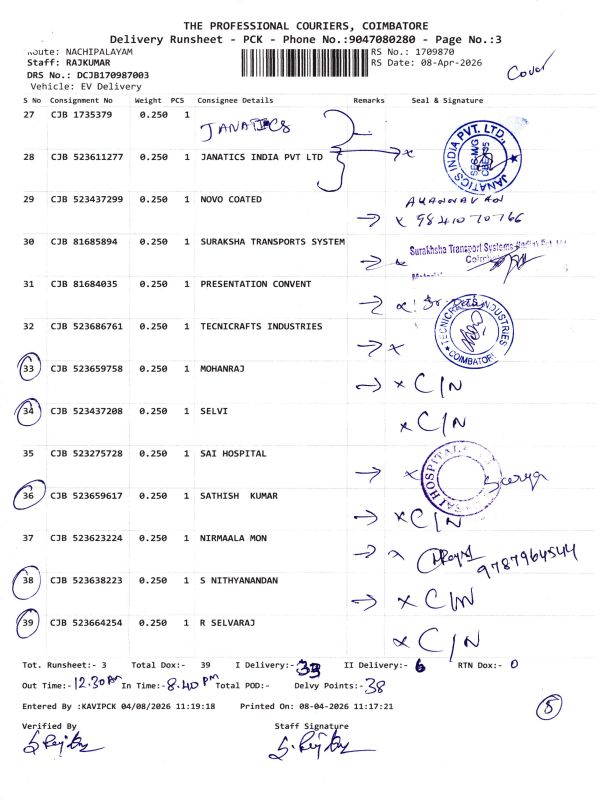 THE PROFESSIONAL COURIERS, COIMBATORE
Delivery Runsheet - PCK - Phone No.:9047080280 - Page No.:3
Route: NACHIPALAYAM RS No.: 1709870
Staff: RAJKUMAR RS Date: 08-Apr-2026
Cover
DRS No.: DCJB170987003
Vehicle: EV Delivery
S No Consignment No Weight PCS Consignee Details Remarks Seal & Signature
27 CJB 1735379 0.250 1 JANATICS
28 CJB 523611277 0.250 1 JANATICS INDIA PVT LTD → x JANATICS INDIA PVT. LTD.,
29 CJB 523437299 0.250 1 NOVO COATED
→ x 9841070766
30 CJB 81685894 0.250 1 SURAKSHA TRANSPORTS SYSTEM Surakhsha Transport Systems
→ x
31 CJB 81684035 0.250 1 PRESENTATION CONVENT
→ x
32 CJB 523686761 0.250 1 TECNICRAFTS INDUSTRIES TECNICRAFTS INDUSTRIES COIMBATORE
→ x
33 CJB 523659758 0.250 1 MOHANRAJ → x C/N
34 CJB 523437208 0.250 1 SELVI x C/N
35 CJB 523275728 0.250 1 SAI HOSPITAL → x SAI HOSPITAL
36 CJB 523659617 0.250 1 SATHISH KUMAR → x C/N
37 CJB 523623224 0.250 1 NIRMAALA MON → x 9787964544
38 CJB 523638223 0.250 1 S NITHYANANDAN → x C/N
39 CJB 523664254 0.250 1 R SELVARAJ x C/N
Tot. Runsheet:- 3 Total Dox:- 39 I Delivery:- 33 II Delivery:- 6 RTN Dox:- 0
Out Time:- 12.30PM In Time:- 8.40PM Total POD:- Delvy Points:- 38
Entered By :KAVIPCK 04/08/2026 11:19:18 Printed On: 08-04-2026 11:17:21
Verified By Staff Signature